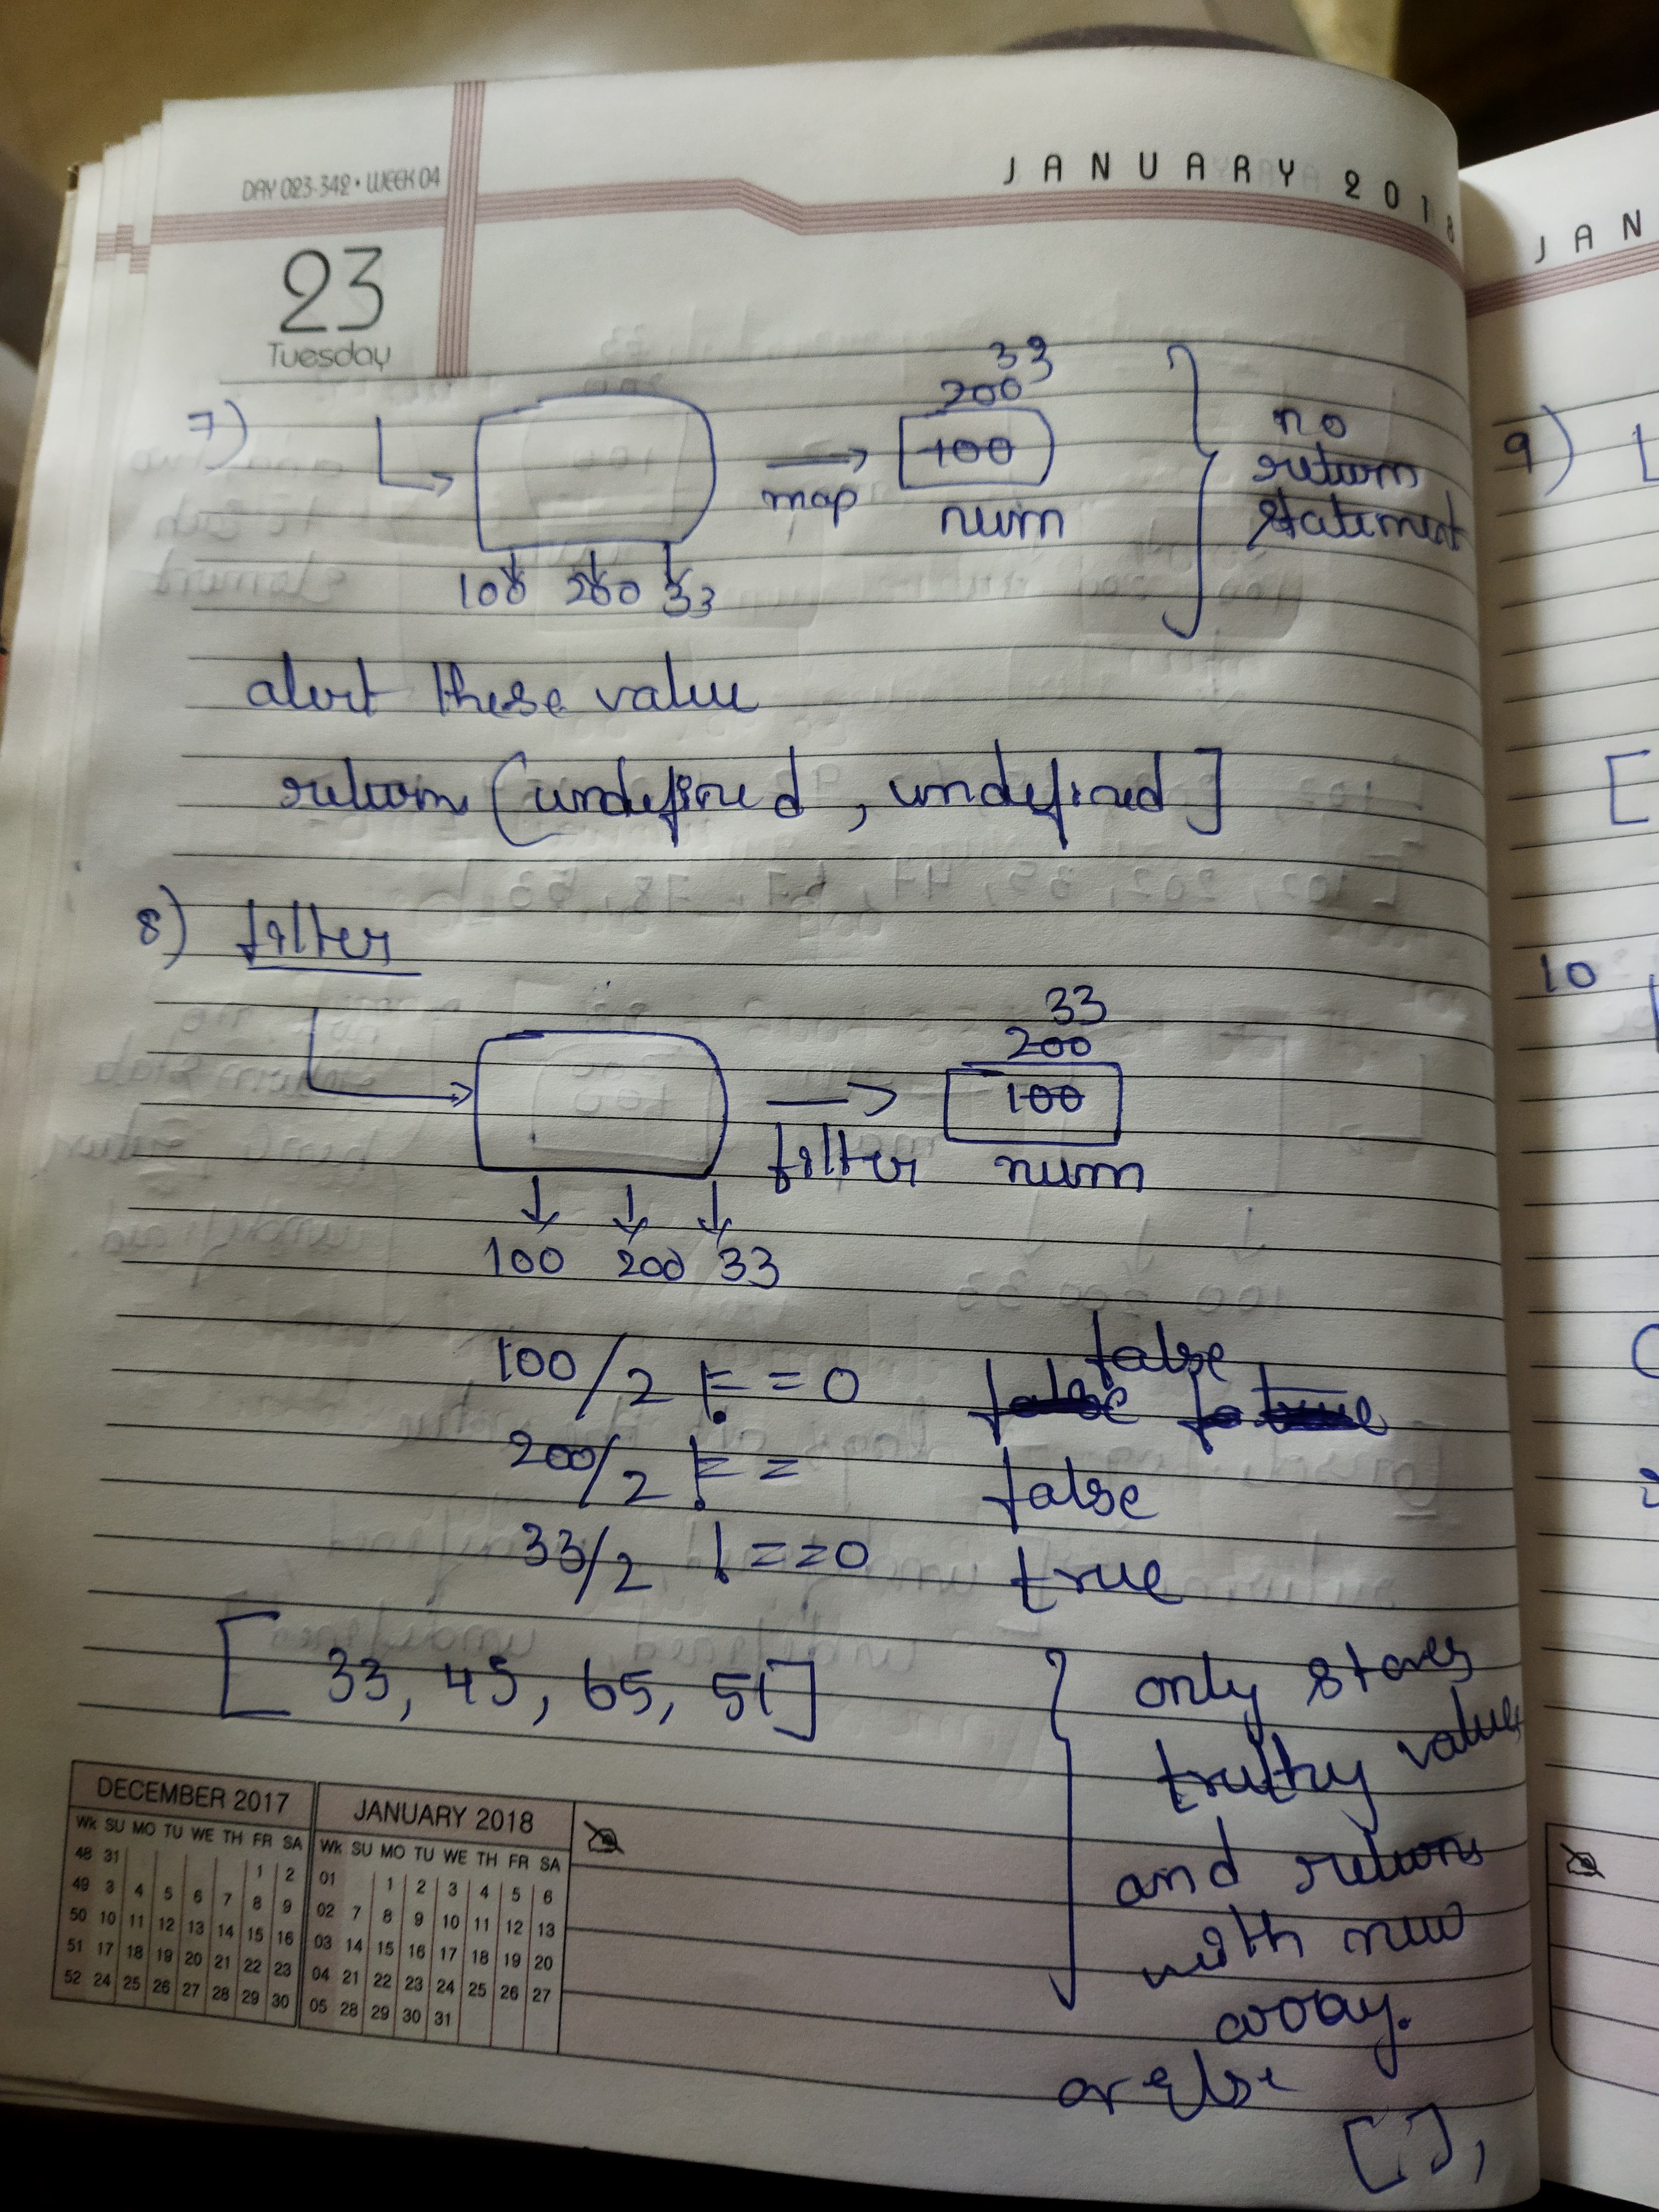 DAY 023-342 • WEEK 04
JANUARY 2018
23
Tuesday
7)
33
200
100
map
num
100 200 33
no
return
statement
alert these value
return [undefined, undefined]
8) filter
33
200
100
filter
num
100 200 33
100/2 !== 0 false
200/2 !== false
33/2 !==0 true
[33, 45, 65, 51]
only stores
truthy values
and returns
with new
array.
or else
[],
DECEMBER 2017
Wk SU MO TU WE TH FR SA
48 31 1 2
49 3 4 5 6 7 8 9
50 10 11 12 13 14 15 16
51 17 18 19 20 21 22 23
52 24 25 26 27 28 29 30
JANUARY 2018
Wk SU MO TU WE TH FR SA
01 1 2 3 4 5 6
02 7 8 9 10 11 12 13
03 14 15 16 17 18 19 20
04 21 22 23 24 25 26 27
05 28 29 30 31
JAN
9)
[
10